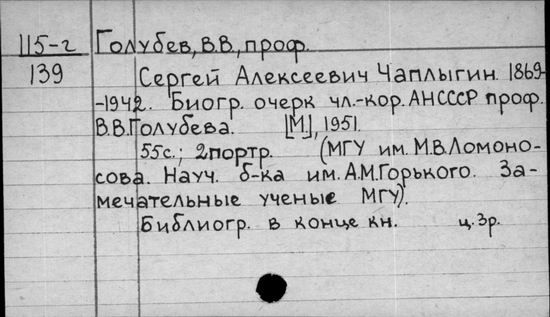 115-г Голубев, В.В., проф.
139 Сергей Алексеевич Чаплыгин. 1869-
-1942. Биогр. очерк чл.-кор. АНСССР проф.
В.В.Голубева. [М], 1951.
55с.; 2портр. (МГУ им. М.В.Ломоно-
сова. Науч. б-ка им. А.М.Горького. За-
мечательные ученые МГУ).
Библиогр. в конце кн. ц. 3р.